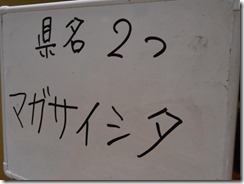 県名 2つ
マガサイシタ